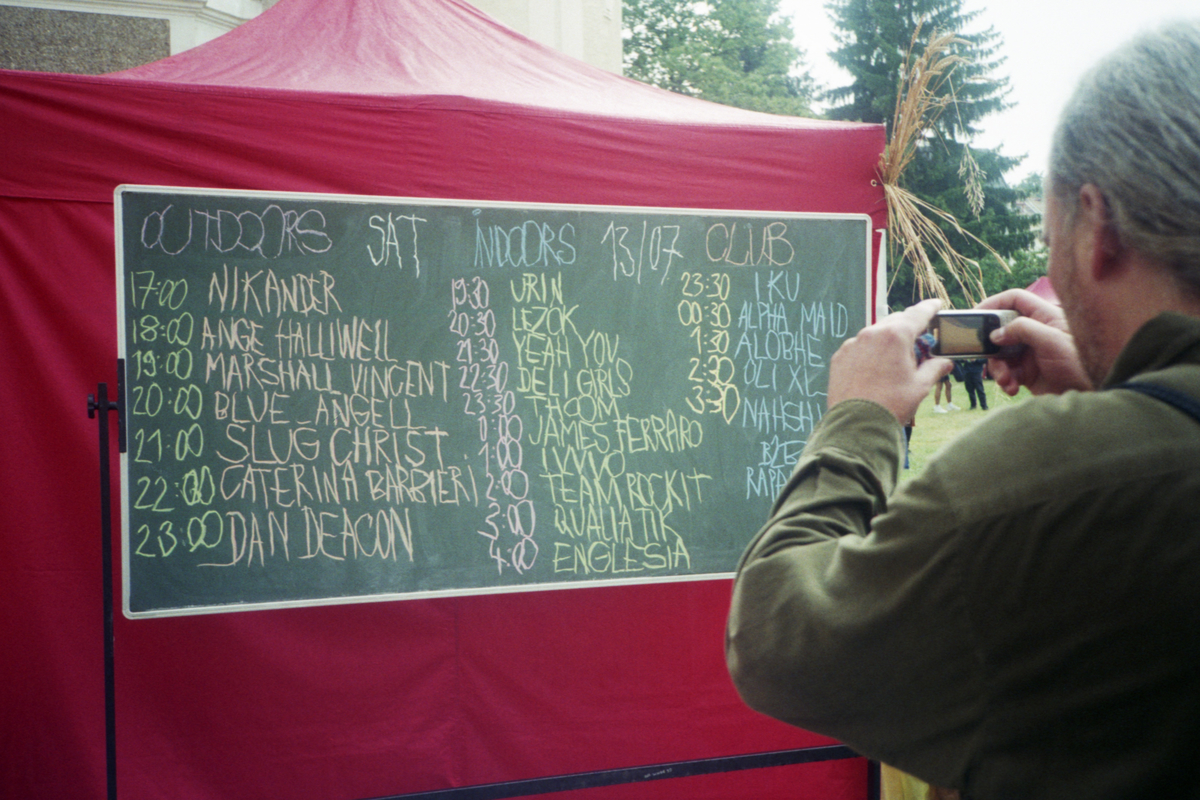 OUTDOORS SAT INDOORS 13/07 CLUB
17:00 NIKANDER
18:00 ANGE HALLIWELL
19:00 MARSHALL VINCENT
20:00 BLUE_ANGELL
21:00 SLUG CHRIST
22:00 CATERINA BARBIERI
23:00 DAN DEACON
19:30 URIN
20:30 LEZOK
21:30 YEAH YOU
22:30 DELI GIRLS
23:30 TACOM
JAMES FERRARO
1:00
2:00 TEAM ROCKIT
3:00 QUALIATIK
4:00 ENGLESIA
23:30 IKU
00:30 ALPHA MAID
1:30 ALOBHE
2:30 OLI XL
3:30